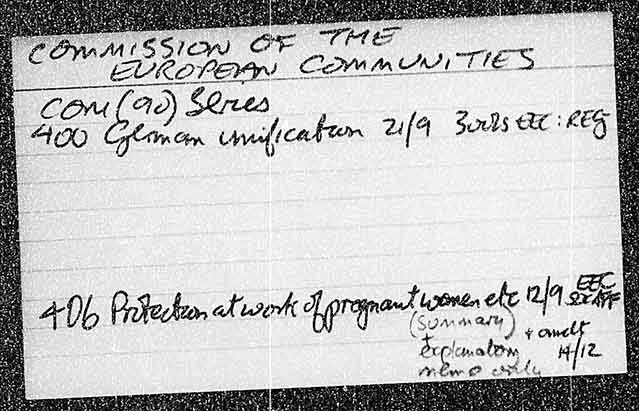 COMMISSION OF THE
EUROPEAN COMMUNITIES
COM(90) Series
400 German unification 21/9 3 vols EEC: REG
406 Protection at work of pregnant women etc 12/9 EEC
SOC AFF
(summary)
+
explanatory
memo only
+ amdt
14/12